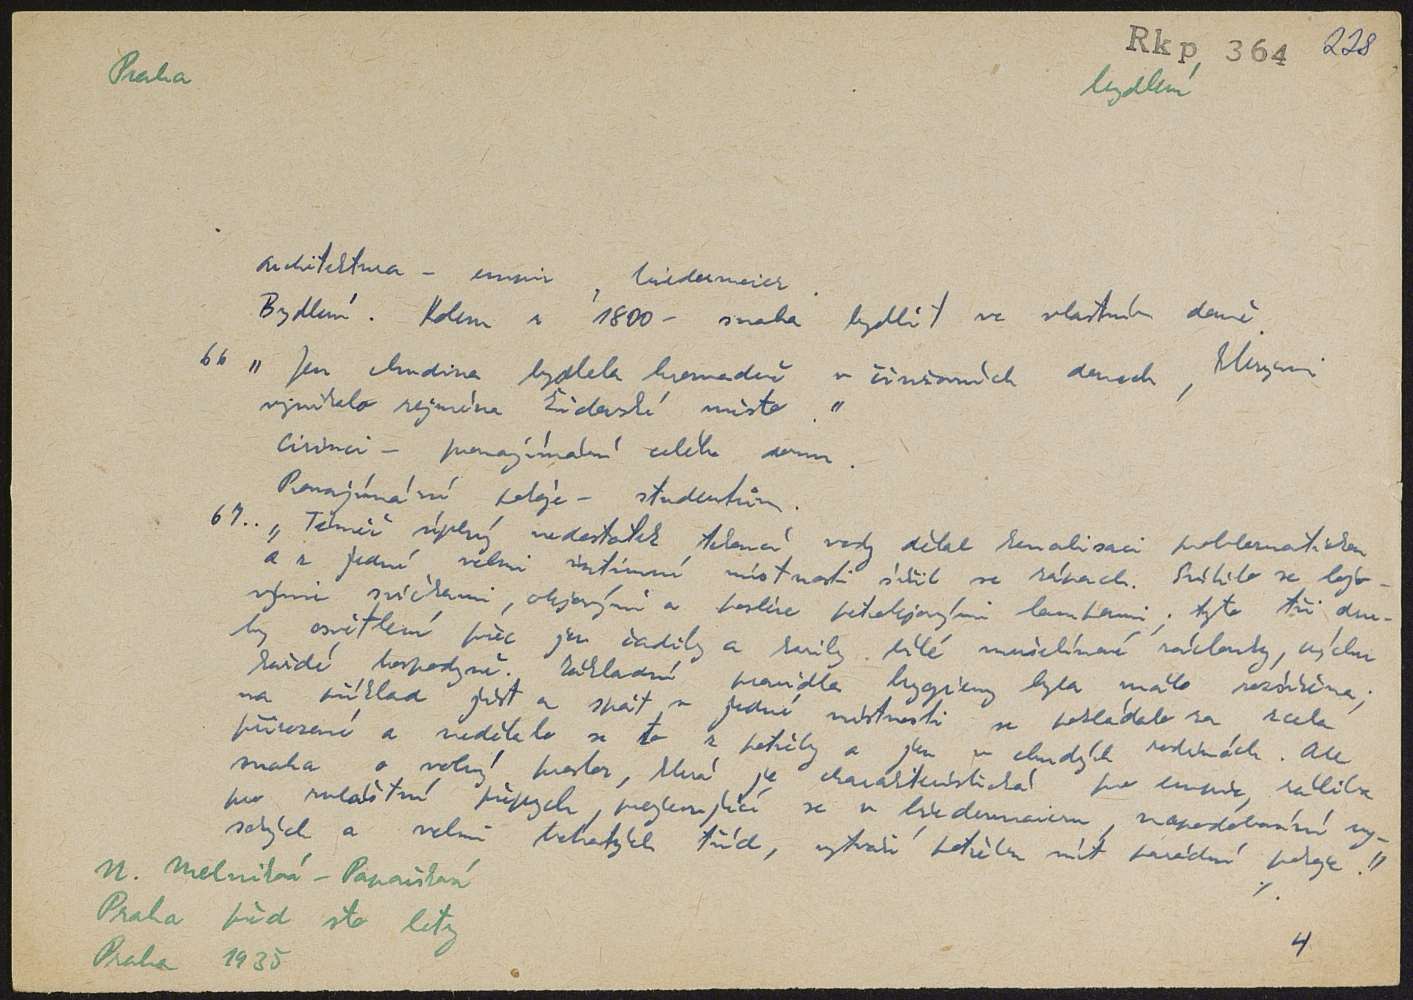 Rkp 364 228
Praha
bydlení
Architektura – empir, biedermeier.
Bydlení. Kolem r 1800 – snaha bydlit ve vlastním domě.
66 „Jen chudina bydlela hromadně v činžovních domech, kterými
vynikalo zejména židovské město."
Cizinci – pronajímání celého domu.
Pronajímání pokoje – studentům.
67.. „Téměř úplný nedostatek tekoucí vody dělal kanalisaci problematickou
a z jedné velmi intimní místnosti šířil se zápach. Svítilo se lojo-
vými svíčkami, olejovými a posléze petrolejovými lampami; tyto tři dru-
hy osvětlení přec jen čadily a kazily bílé mušelínové záclonky, pýchu
každé hospodyně. Základní pravidla hygieny byla málo rozšířena;
na příklad jíst a spát v jedné místnosti se pokládalo za zcela
přirozené a nedělalo se to z potřeby a jen v chudých rodinách. Ale
snaha o volný prostor, která je charakteristická pro empir, záliba
pro zvláštní přepych, projevující se v biedermeieru, napodobování vy-
sokých a velmi bohatých tříd, vytváří potřebu mít parádní pokoje."
./.
N. Melniková-Papoušková
Praha před sto lety
Praha 1935
4